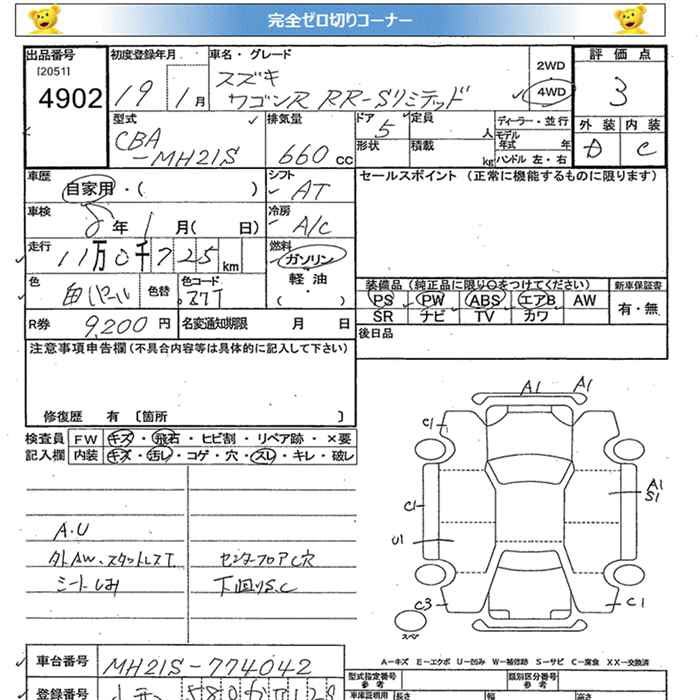 完全ゼロ切りコーナー
出品番号 初度登録年月 車名・グレード 2WD 評価点
[2051] スズキ
4902 19 1月 ワゴンR RR-Sリミテッド 4WD 3
型式 排気量 ドア 定員 ディーラー・並行 外装 内装
CBA 5 人 モデル年式 年 D C
-MH21S 660cc 形状 積載 kg ハンドル 左・右
車歴 シフト セールスポイント (正常に機能するものに限ります)
自家用・( ) AT
車検 冷房
8年1月( 日) A/C
走行 燃料
11万0千725km ガソリン
色 色替 色コード 軽油
白パール Z7T (・)
装備品 (純正品に限り○をつけてください) 新車保証書
PS PW ABS エアB AW 有・無
SR ナビ TV カワ
R券 9,200円 名変通知期限 月 日
後日品
注意事項申告欄 (不具合内容等は具体的に記入して下さい)
修復歴 有 [箇所 ]
検査員 FW キズ・飛石・ヒビ割・リペア跡・×要
記入欄 内装 キズ・汚レ・コゲ・穴・スレ・キレ・破レ
A1 A1
C1
A1
S1
C1
U1
C3 C1
スペア
A.U
外AW、スタットレスT. センターフロアC穴
シートしみ 下回りS.C
A-キズ E-エクボ U-凹み W-補修跡 S-サビ C-腐食 XX-交換済
車台番号 MH21S-774042
型式指定番号 類別区分番号
参考 参考
登録番号
車庫証明用 長さ 幅 高さ